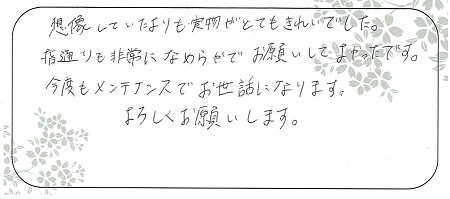 想像していたよりも実物がとてもきれいでした。
指通りも非常になめらかでお願いしてよかったです。
今度もメンテナンスでお世話になります。
よろしくお願いします。